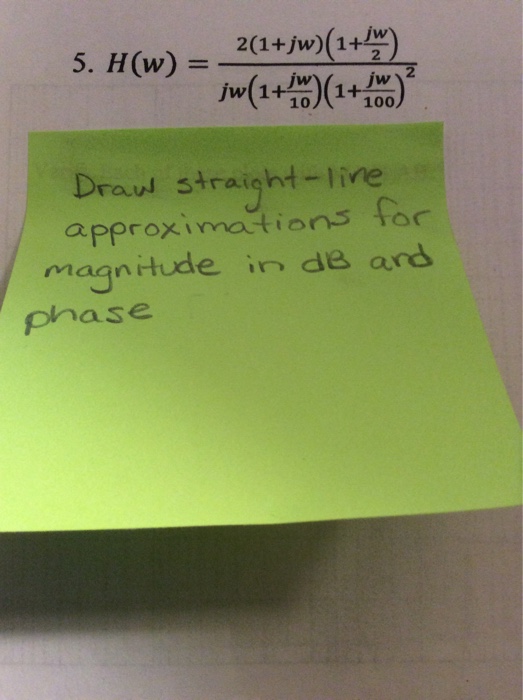 5. H(w) = 2(1+jw)(1+jw/2) / jw(1+jw/10)(1+jw/100)²
Draw straight-line
approximations for
magnitude in dB and
phase